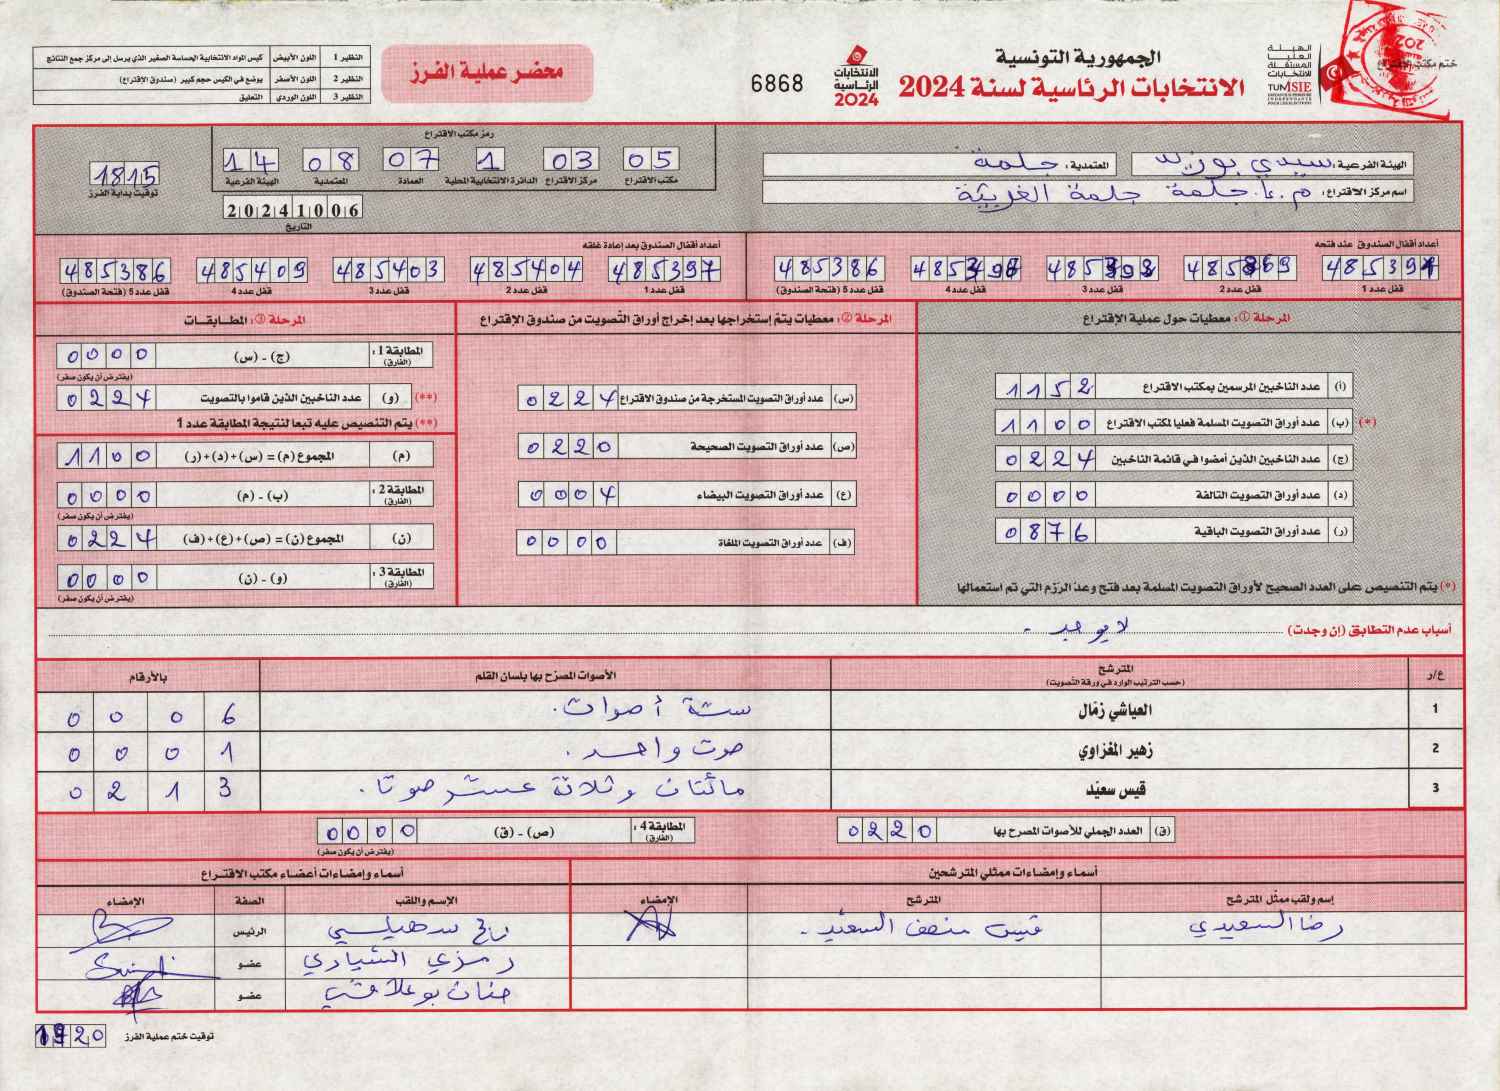 الجمهورية التونسية
الانتخابات الرئاسية لسنة 2024
الهيئة العليا المستقلة للانتخابات
TUNISIE
الانتخابات الرئاسية 2024
6868
محضر عملية الفرز
النظير 1 اللون الأبيض كيس المواد الانتخابية الحساسة الصغير الذي يرسل إلى مركز جمع النتائج
النظير 2 اللون الأصفر يوضع في الكيس حجم كبير (صندوق الاقتراع)
النظير 3 اللون الوردي التعليق
ختم مكتب الاقتراع
الهيئة الفرعية: سيدي بوزيد المعتمدية: جلمة
اسم مركز الاقتراع: م.إ. جلمة جلمة الغربية
رمز مكتب الاقتراع
05 03 1 07 08 14
مكتب الاقتراع مركز الاقتراع الدائرة الانتخابية المحلية العمادة المعتمدية الهيئة الفرعية
20241006
التاريخ
1815
توقيت بداية الفرز
أعداد أقفال الصندوق عند فتحه
485386
قفل عدد 1 قفل عدد 2 قفل عدد 3 قفل عدد 4 قفل عدد 5 (فتحة الصندوق)
أعداد أقفال الصندوق بعد إعادة غلقه
485397 485404 485403 485409 485386
قفل عدد 1 قفل عدد 2 قفل عدد 3 قفل عدد 4 قفل عدد 5 (فتحة الصندوق)
المرحلة ①: معطيات حول عملية الاقتراع
(أ) عدد الناخبين المرسمين بمكتب الاقتراع 1152
(*) (ب) عدد أوراق التصويت المسلمة فعليا لمكتب الاقتراع 1100
(ج) عدد الناخبين الذين أمضوا في قائمة الناخبين 0224
(د) عدد أوراق التصويت التالفة 0000
(ر) عدد أوراق التصويت الباقية 0876
(*) يتم التنصيص على العدد الصحيح لأوراق التصويت المسلمة بعد فتح وعدّ الرزم التي تم استعمالها
المرحلة ②: معطيات يتمّ إستخراجها بعد إخراج أوراق التّصويت من صندوق الإقتراع
(س) عدد أوراق التصويت المستخرجة من صندوق الاقتراع 0224
(ص) عدد أوراق التصويت الصحيحة 0220
(ع) عدد أوراق التصويت البيضاء 0004
(ف) عدد أوراق التصويت الملغاة 0000
المرحلة ③: المطابقات
المطابقة 1: (الفارق) (ج) - (س) 0000
(يفترض أن يكون صفر)
(**) (و) عدد الناخبين الذين قاموا بالتصويت 0224
(**) يتم التنصيص عليه تبعا لنتيجة المطابقة عدد 1
(م) المجموع (م) = (س)+(د)+(ر) 1100
المطابقة 2: (الفارق) (ب) - (م) 0000
(يفترض أن يكون صفر)
(ن) المجموع (ن) = (ص)+(ع)+(ف) 0224
المطابقة 3: (الفارق) (و) - (ن) 0000
(يفترض أن يكون صفر)
أسباب عدم التطابق (إن وجدت) لا يوجد.
ع/ر المترشح الأصوات المصرّح بها بلسان القلم بالأرقام
(حسب الترتيب الوارد في ورقة التّصويت)
1 العياشي زمّال ستة أصوات. 0006
2 زهير المغزاوي صوت واحد. 0001
3 قيس سعيّد مائتان وثلاثة عشر صوتا. 0213
(ق) العدد الجملي للأصوات المصرح بها 0220
المطابقة 4: (الفارق) (ص) - (ق) 0000
(يفترض أن يكون صفر)
أسماء وإمضاءات ممثلي المترشحين
إسم ولقب ممثّل المترشح المترشح الإمضاء
رضا السعيدي قيس منصف السعيد.
أسماء وإمضاءات أعضاء مكتب الاقتراع
الإسم واللقب الصفة الإمضاء
سهيلي الرئيس
رمزي الشيادي عضو
حنان عضو
توقيت ختم عملية الفرز